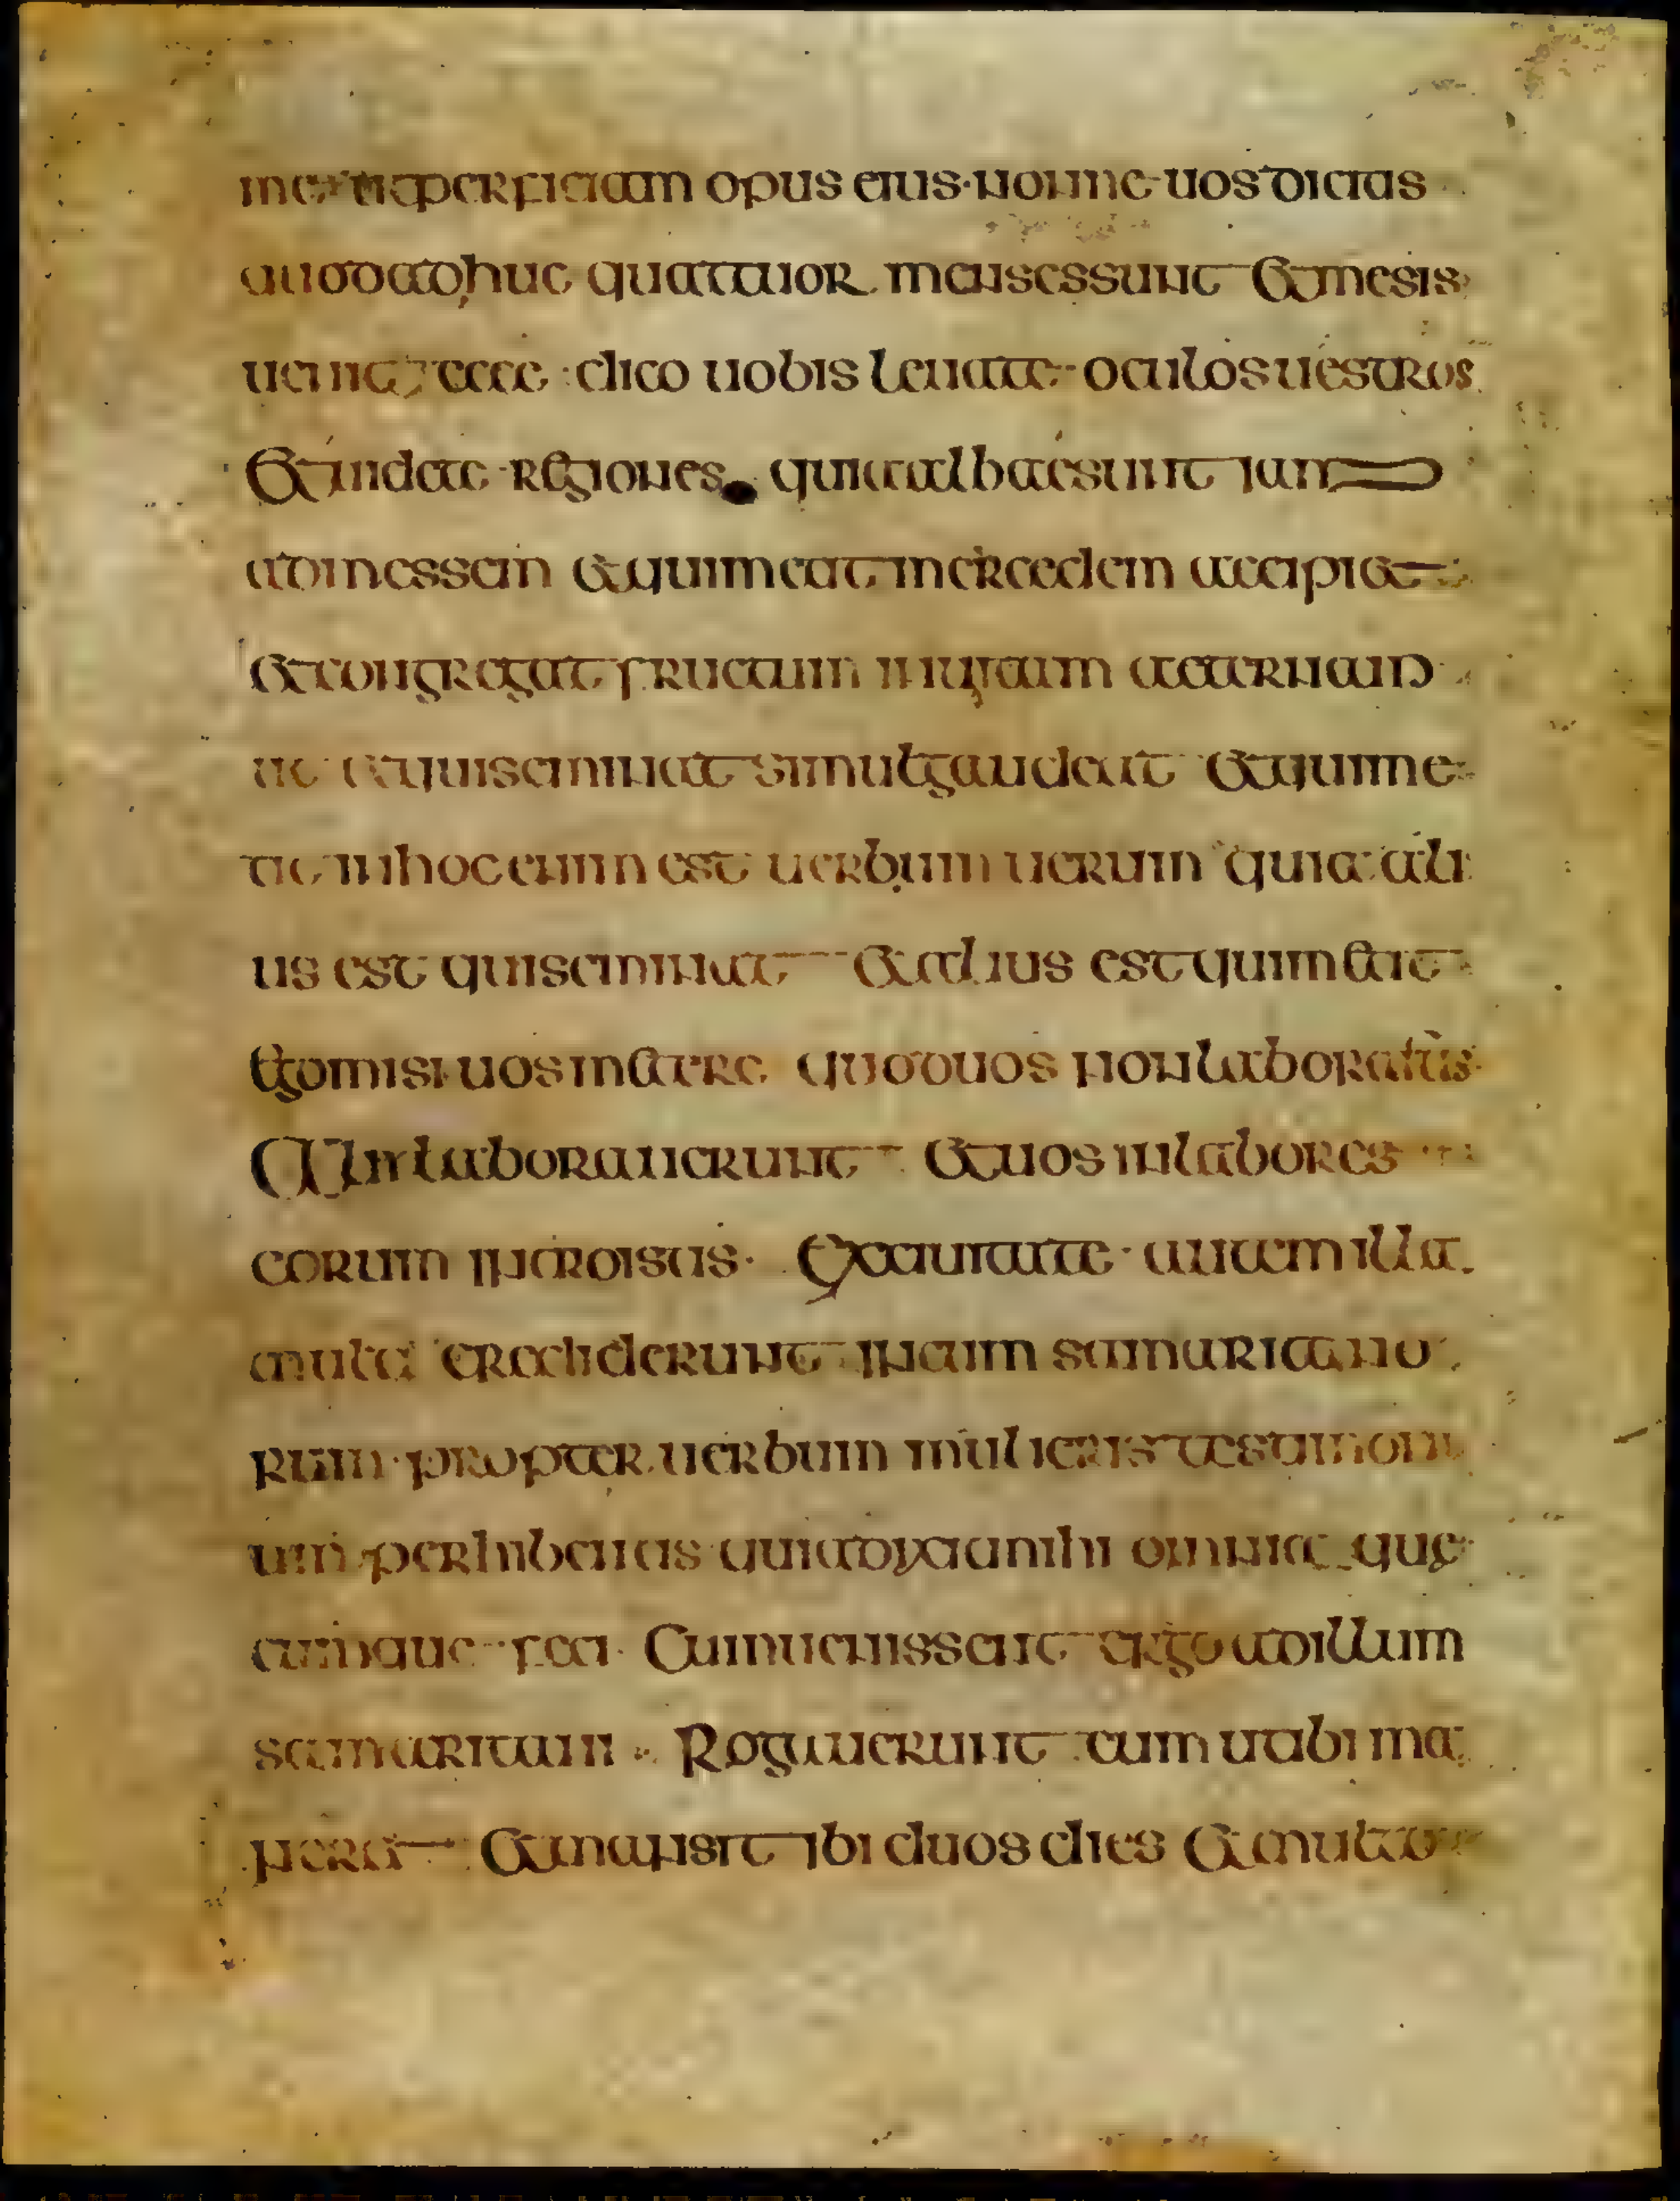 me ut perficiam opus eius · nonne uos dicitis
quod adhuc quattuor menses sunt Et mesis
uenit, ecce : dico uobis leuate · oculos uestros
Et uidete · regiones quia albae sunt iam
ad messem Et qui metit mercedem accipiet
Et congregat fructum in uitam aeternam
ut et qui seminat simul gaudeat Et qui me
tit in hoc enim est uerbum uerum quia ali
us est qui seminat Et alius est qui metit
Ego misi uos metere quod uos non laborastis
Alii laborauerunt Et uos in labores
eorum introistis · Ex ciuitate · autem illa
multi crediderunt in eum samaritano
rum · propter uerbum mulieris testimoni
um perhibentis quia dixit mihi omnia quę
cumque · feci · Cum uenissent ergo ad illum
samaritani · Rogauerunt eum ut ibi ma
neret Et mansit ibi duos dies Et multo